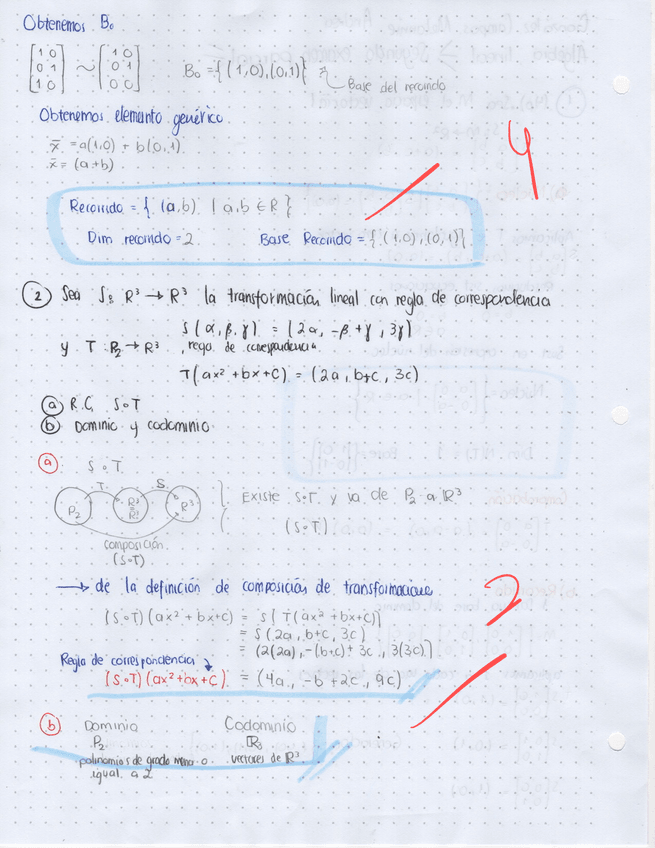 Obtenemos B₀
[1 0  [1 0
0 1 ~ 0 1   B₀ = {(1,0), (0,1)}
1 0]  0 0]   Base del recorrido
Obtenemos elemento genérico.
x̄ = a(1,0) + b(0,1)
x̄ = (a+b)
4
Recorrido = { (a,b) | a,b ∈ R }
Dim recorrido = 2   Base Recorrido = { (1,0), (0,1) }
② Sea S: R³ → R³ la transformación lineal con regla de correspondencia
S(α, β, γ) = (2α, -β + γ, 3γ)
y T: P₂ → R³, regla de correspondencia
T(ax² + bx + c) = (2a, b+c, 3c)
ⓐ R.C. S∘T
ⓑ Dominio y codominio
ⓐ S∘T
T   S
P₂   R³   R³   Existe S∘T y va de P₂ a R³
R³
(S∘T)
composición
(S∘T)
→ de la definición de composición de transformaciones
2
(S∘T)(ax² + bx + c) = S[T(ax² + bx + c)]
= S(2a, b+c, 3c)
= (2(2a), -(b+c) + 3c, 3(3c))
Regla de correspondencia
(S∘T)(ax² + bx + c) = (4a, -b + 2c, 9c)
ⓑ Dominio   Codominio
P₂   R³
polinomios de grado menor o   vectores de R³
igual a 2